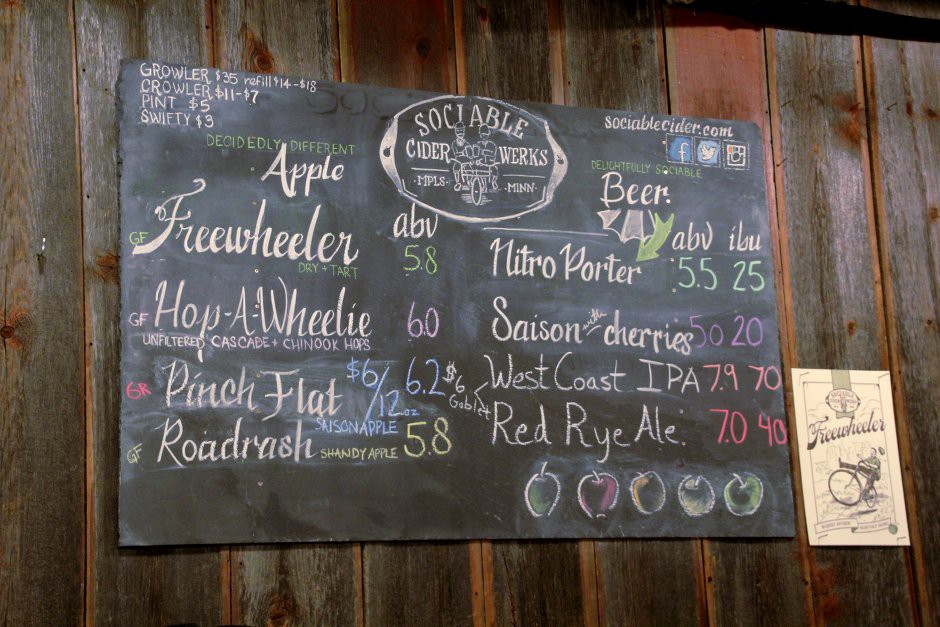 GROWLER $35 refill $14-$18
CROWLER $11-$7
PINT $5
SWIFTY $3
SOCIABLE
CIDER WERKS
MPLS MINN
sociablecider.com
DECIDEDLY DIFFERENT
Apple
abv
GF Freewheeler 5.8
DRY + TART
GF Hop-A-Wheelie 6.0
UNFILTERED CASCADE + CHINOOK HOPS
GR Pinch Flat $6/12oz 6.2
SAISON APPLE
GF Roadrash SHANDY APPLE 5.8
DELIGHTFULLY SOCIABLE
Beer.
abv ibu
Nitro Porter 5.5 25
Saison with cherries 50 20
$6 Goblet
West Coast IPA 7.9 70
Red Rye Ale. 7.0 40
SOCIABLE
Freewheeler